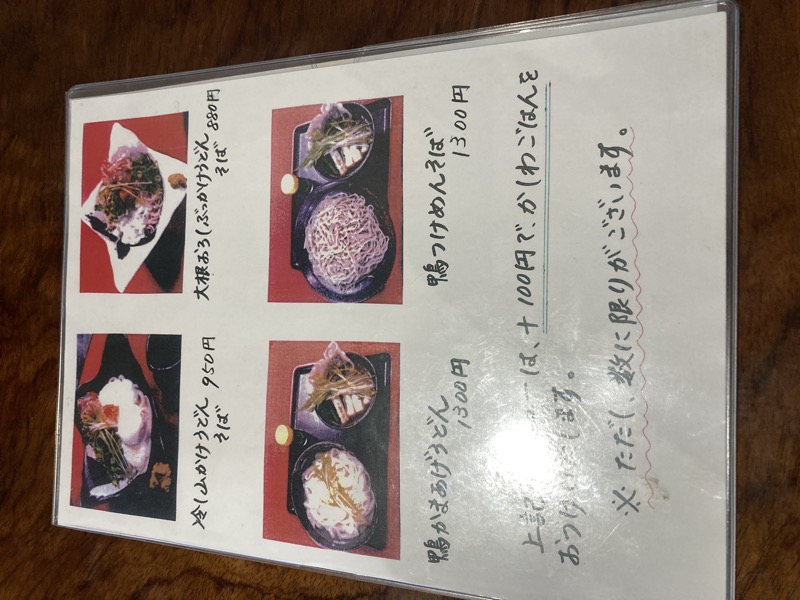 冷し山かけうどん
そば 950円
大根おろしぶっかけうどん
そば 880円
鴨かまあげうどん
1300円
鴨つけめんそば
1300円
上記 ーは、+100円で、かしわごはんを
おつけいたします。
※ ただし、数に限りがございます。